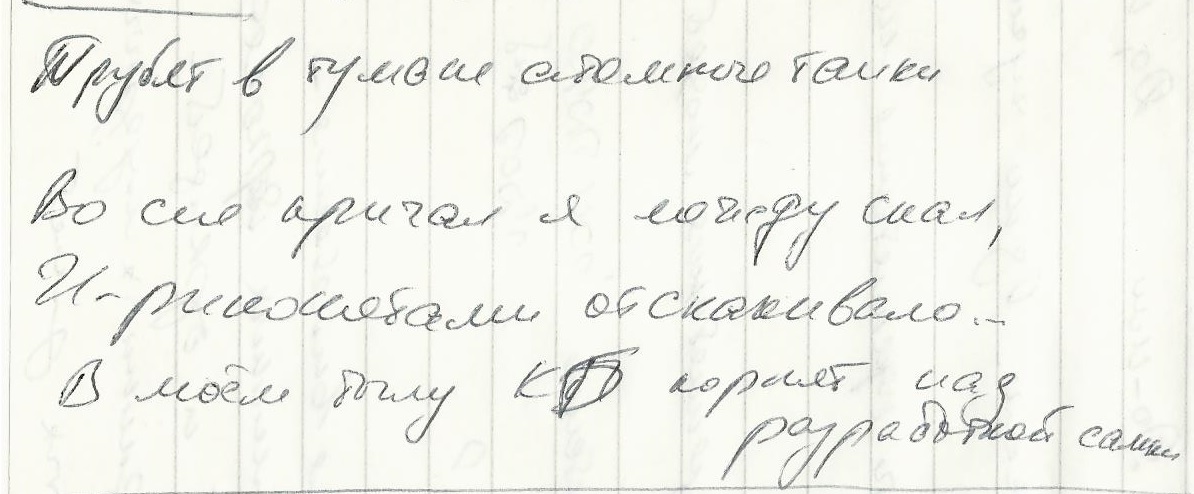 Трубят в тумане атомные танки
Во сне кричал я между скал,
И - рикошетами отскакивало..-
В моём тылу КБ корпят над
разработкой самки